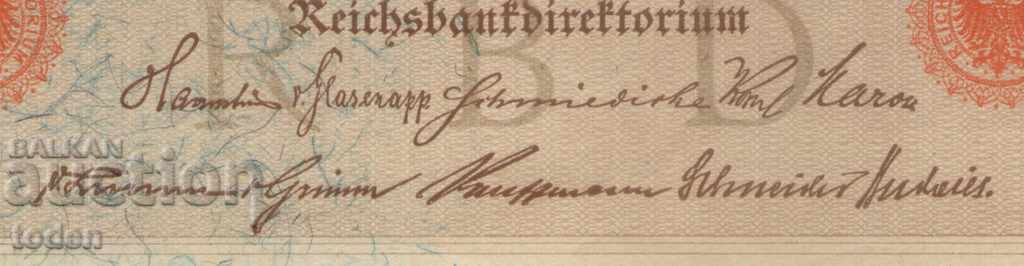 Reichsbankdirektorium
RBD
Havenstein v. Glasenapp Schmiedicke Korn Maron
v. Grimm Kauffmann Schneider Budczies.
BALKAN
auction
toden